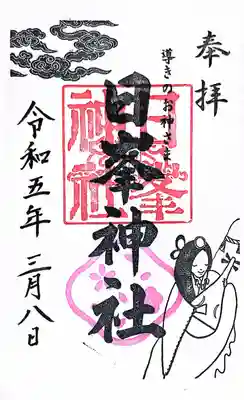 奉拝
導きのお神さま
日峯神社
日峯神社
令和五年 三月八日